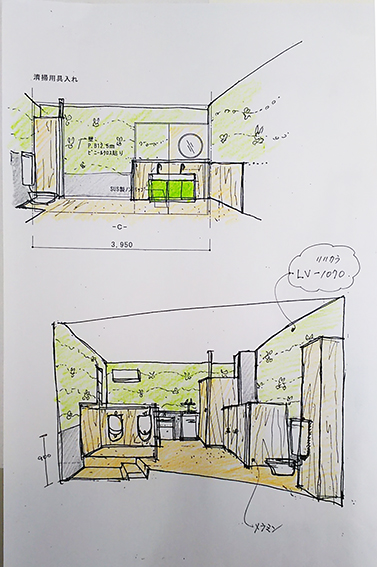 清掃用具入れ
壁:
P.B12.5m
ビニールクロス貼り
SUS製
-C-
3,950
リリカラ
LV-1070
900
メラミン